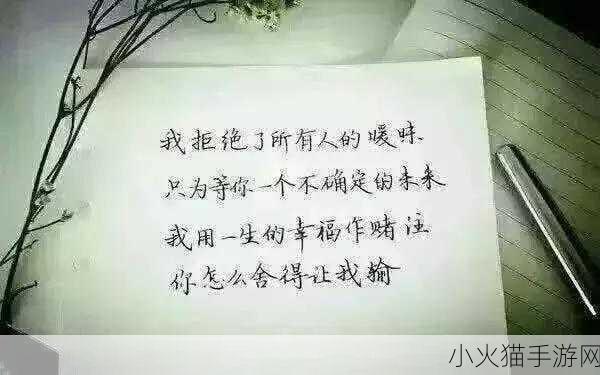 我拒绝了所有人的暧昧
只为等你一个不确定的未来
我用一生的幸福作赌注
你怎么舍得让我输
小火猫手游网